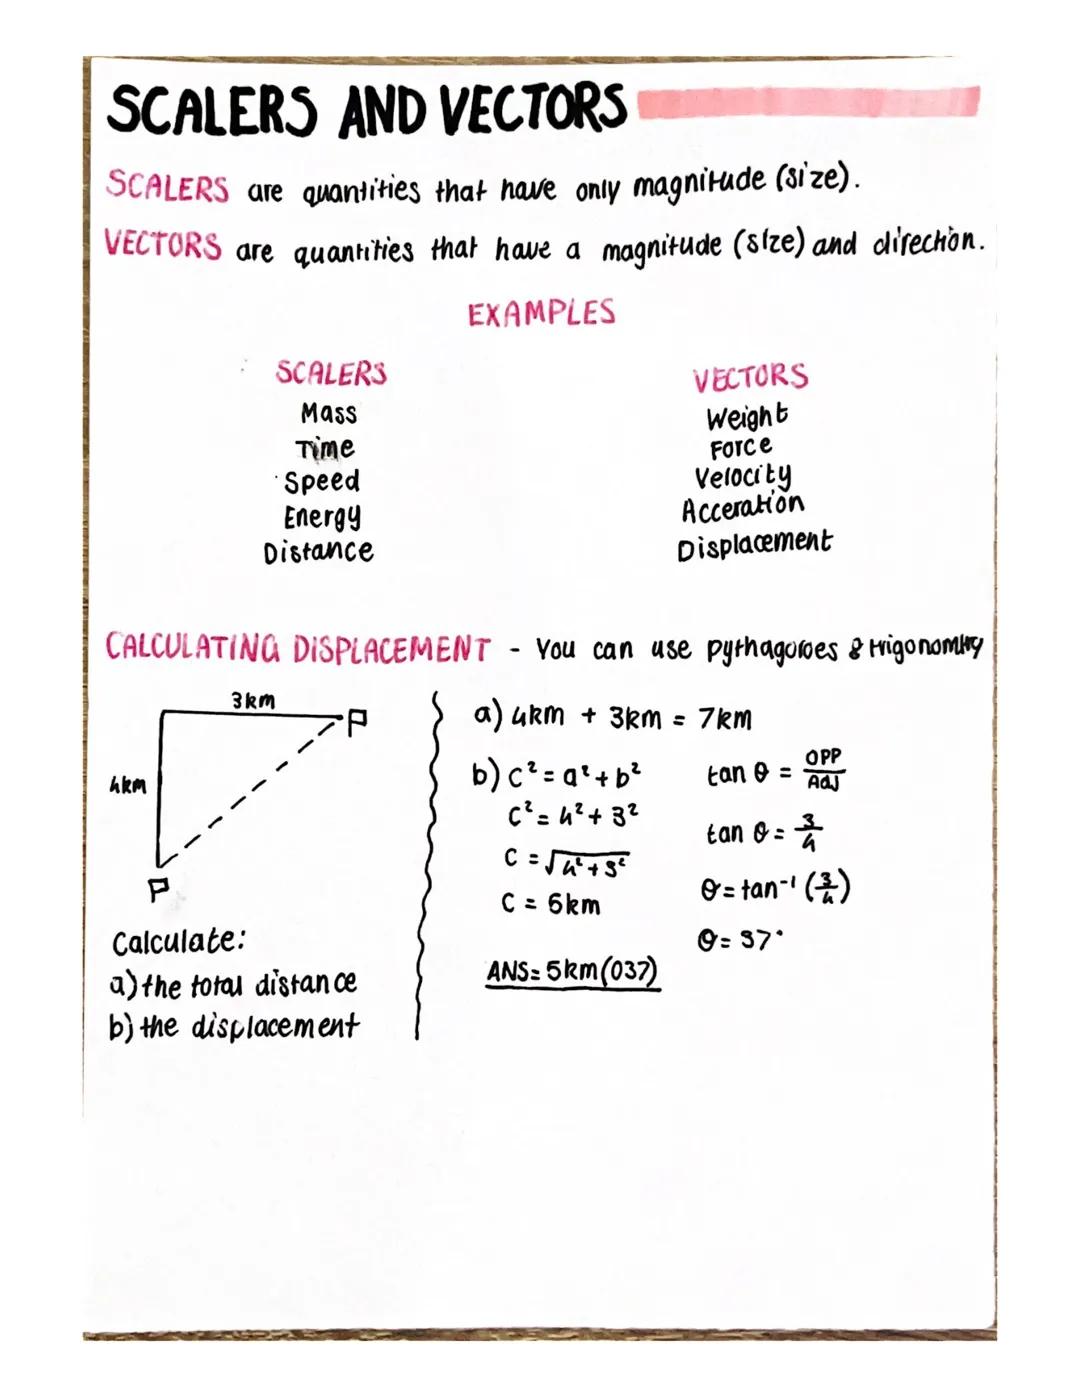 SCALERS AND VECTORS
SCALERS are quantities that have only magnitude (size).
VECTORS are quantities that have a magnitude (size) and direction.
EXAMPLES
SCALERS
Mass
Time
Speed
Energy
Distance
VECTORS
Weight
Force
Velocity
Acceration
Displacement
CALCULATING DISPLACEMENT - You can use pythagoroes & trigonomtry
3km
4km
Calculate:
a) the total distance
b) the displacement
a) 4km + 3km = 7km
b) c² = a² + b²
c² = 4² + 3²
c = √4² + 3²
c = 5km
ANS = 5km (037)
tan θ = OPP/ADJ
tan θ = 3/4
θ = tan⁻¹ (3/4)
θ = 37°